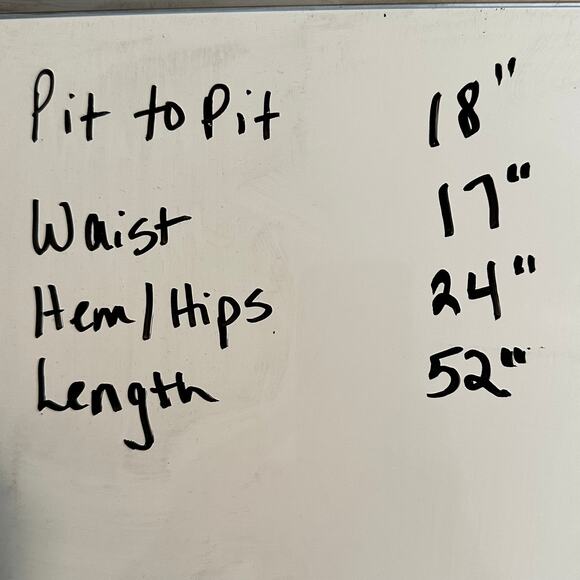 Pit to Pit 18"
Waist 17"
Hem/Hips 24"
Length 52"